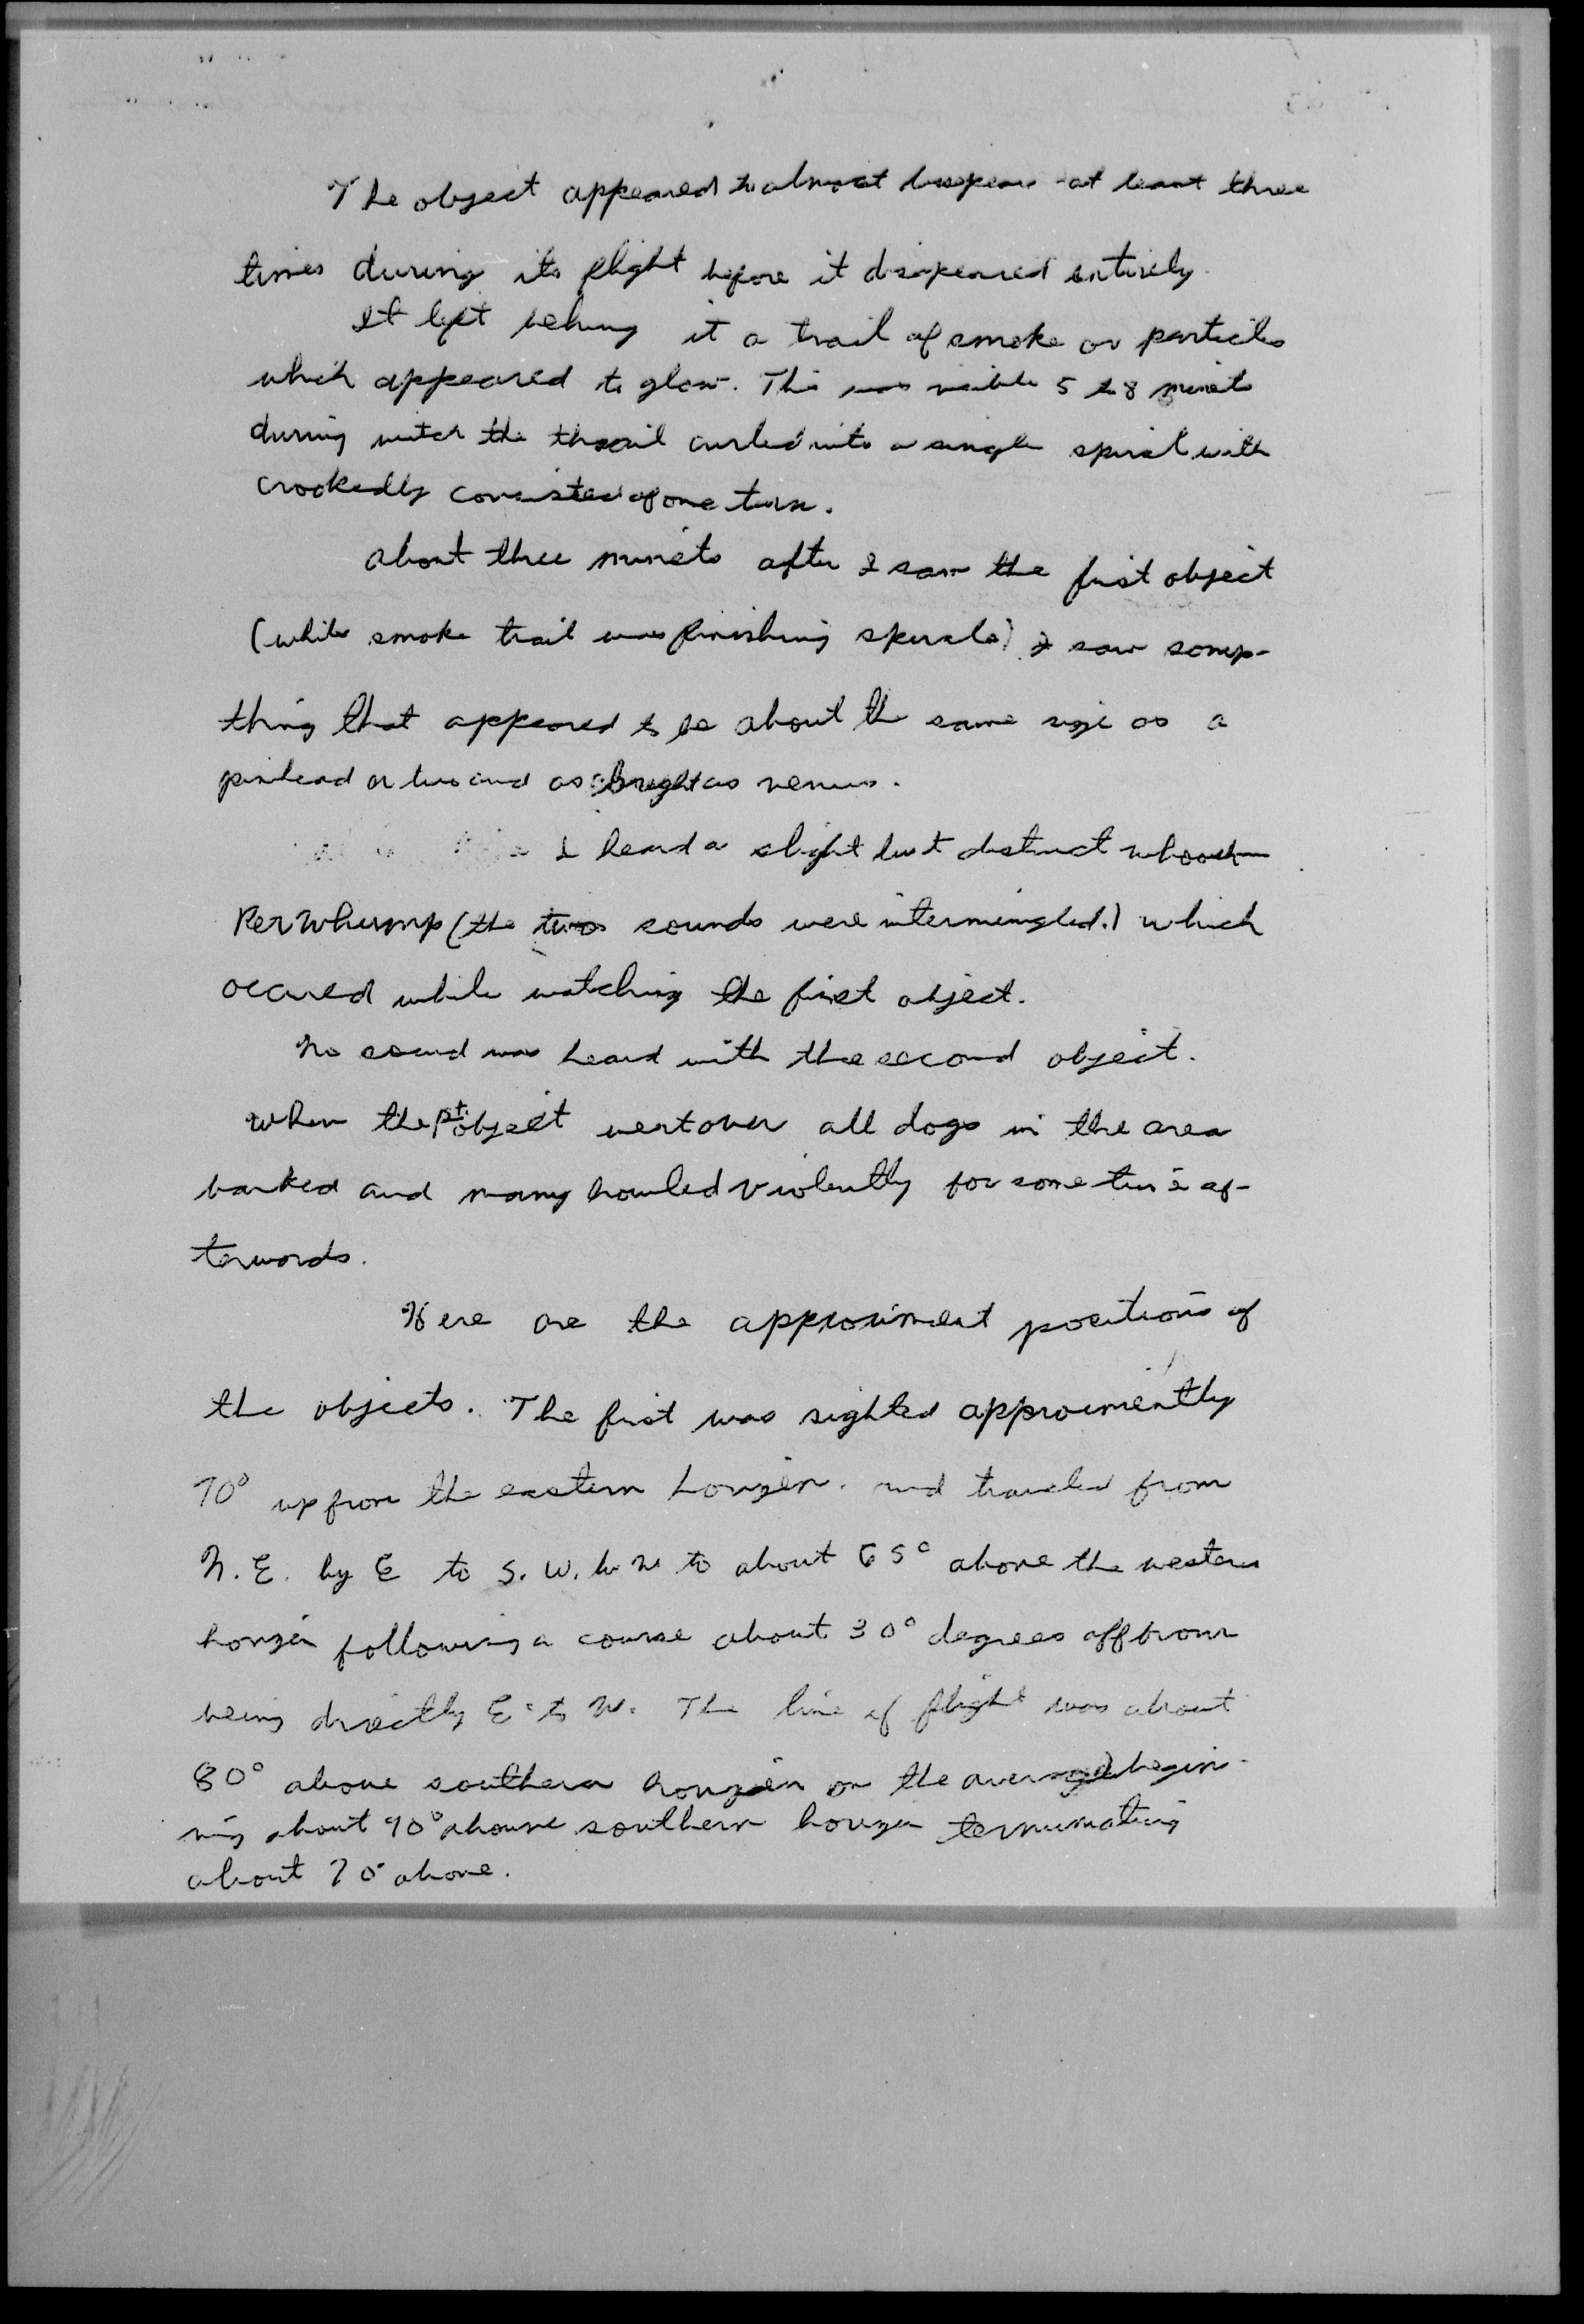 The object appeared to almost dissapear at least three
times during its flight before it disapeared entirely.
It left behing it a trail of smoke or particles
which appeared to glow. This was visible 5 to 8 minets
during witch the thrail curled into a single spiral with
crookedly consisted of one turn.
about three minets after I saw the first object
(while smoke trail was finishing spirals) I saw somp-
thing that appeared to be about the same size as a
pinhead or two and as bright as venus.
I heard a slight but distinct whoosh
Kerwhump (the two sounds were intermingled.) which
occured while watching the first object.
No sound was heard with the second object.
When the 1st. object went over all dogs in the area
barked and many howled violently for some time af-
terwords.
Here are the approximent positions of
the objects. The first was sighted approximently
70° up from the eastern horizen. and traveled from
N.E. by E to S.W. by W to about 65° above the western
horizen following a course about 30° degrees off from
being directly E. to W. The line of flight was about
80° above southern horizen on the average begin-
ning about 90° above southern horizen terminating
about 70° above.